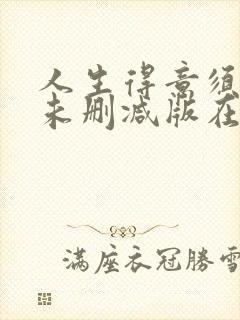 人生得意须
未删减版在
满座衣冠勝雪